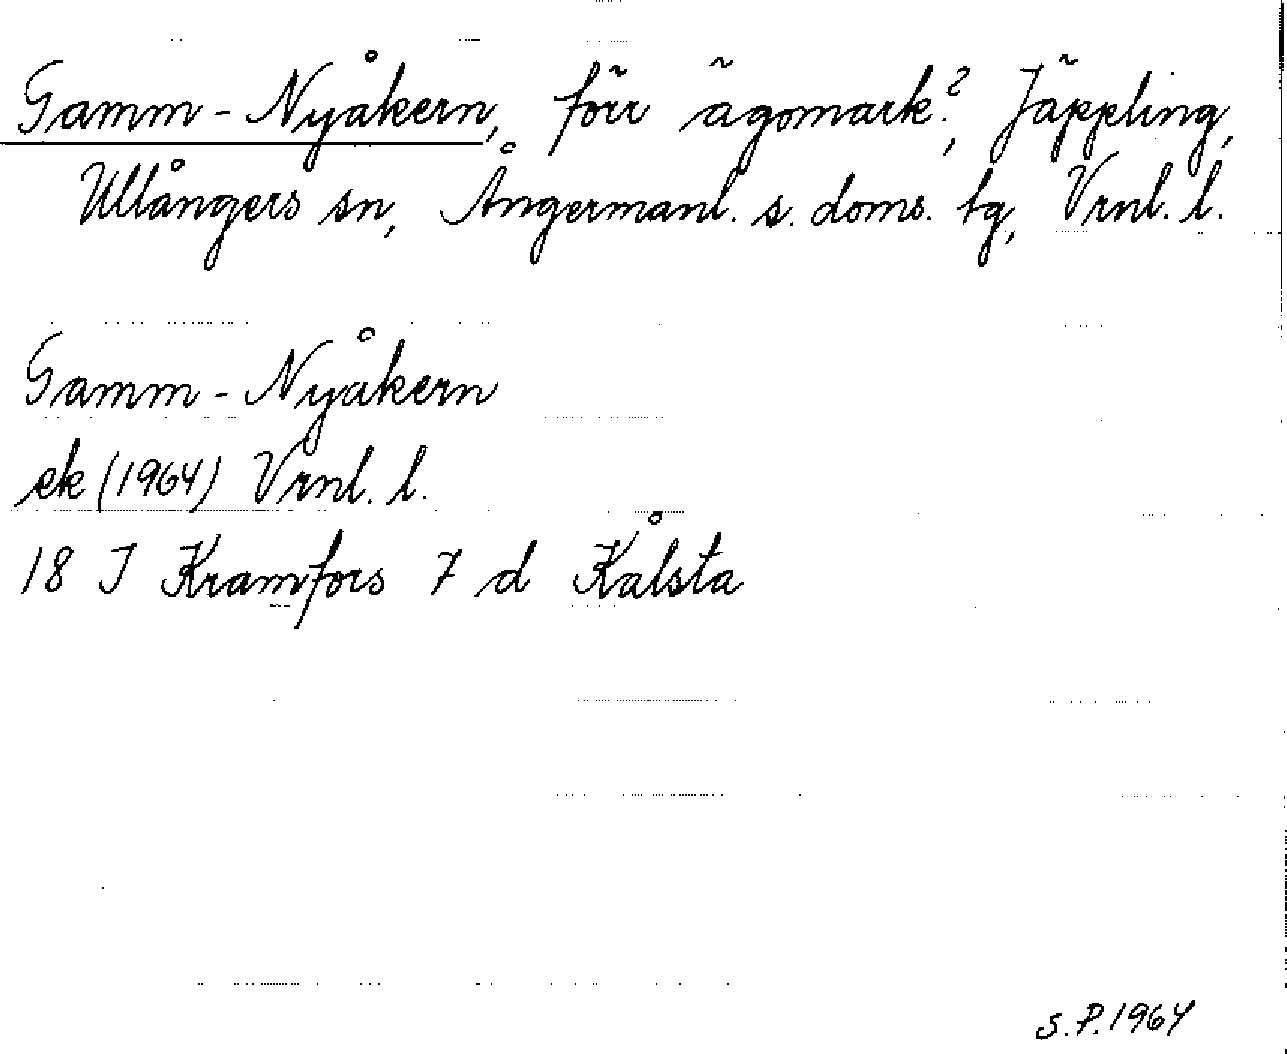 Gamm-Nyåkern, förr ägomark?, Jäppling,
Ullångers sn, Ångermanl. s. doms. tg, Vrnl. l.
Gamm-Nyåkern
ek (1964) Vrnl. l.
18 I Kramfors 7 d Kålsta
S.P. 1964